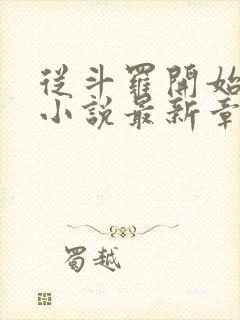 從斗羅開始
小說最新章
蜀越